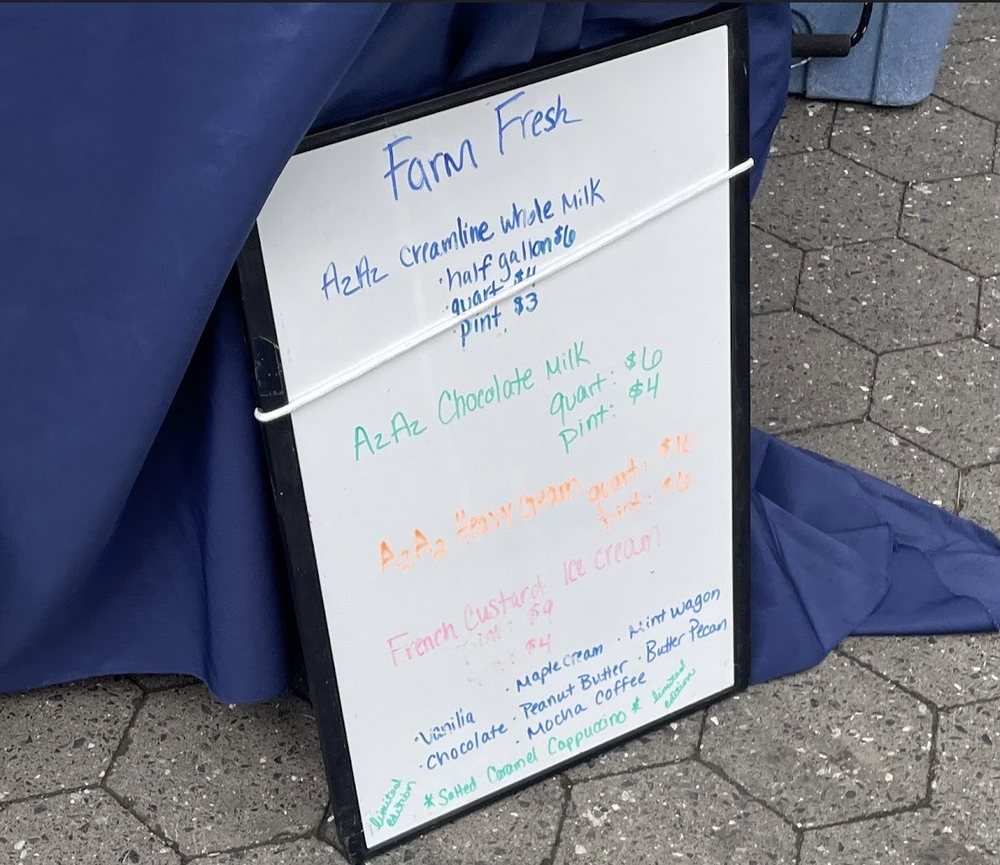 Farm Fresh
A2A2 Creamline whole Milk
·half gallon $6
·quart $4
·pint $3
A2A2 Chocolate Milk
quart: $6
pint: $4
A2A2 Heavy Cream quart:
pint: $6
French Custard Ice cream
pint: $9
$4
·Maplecream ·Mint wagon
·Vanilla ·Peanut Butter ·Butter Pecan
·Chocolate ·Mocha Coffee
limited edition *Salted Caramel Cappuccino* limited edition